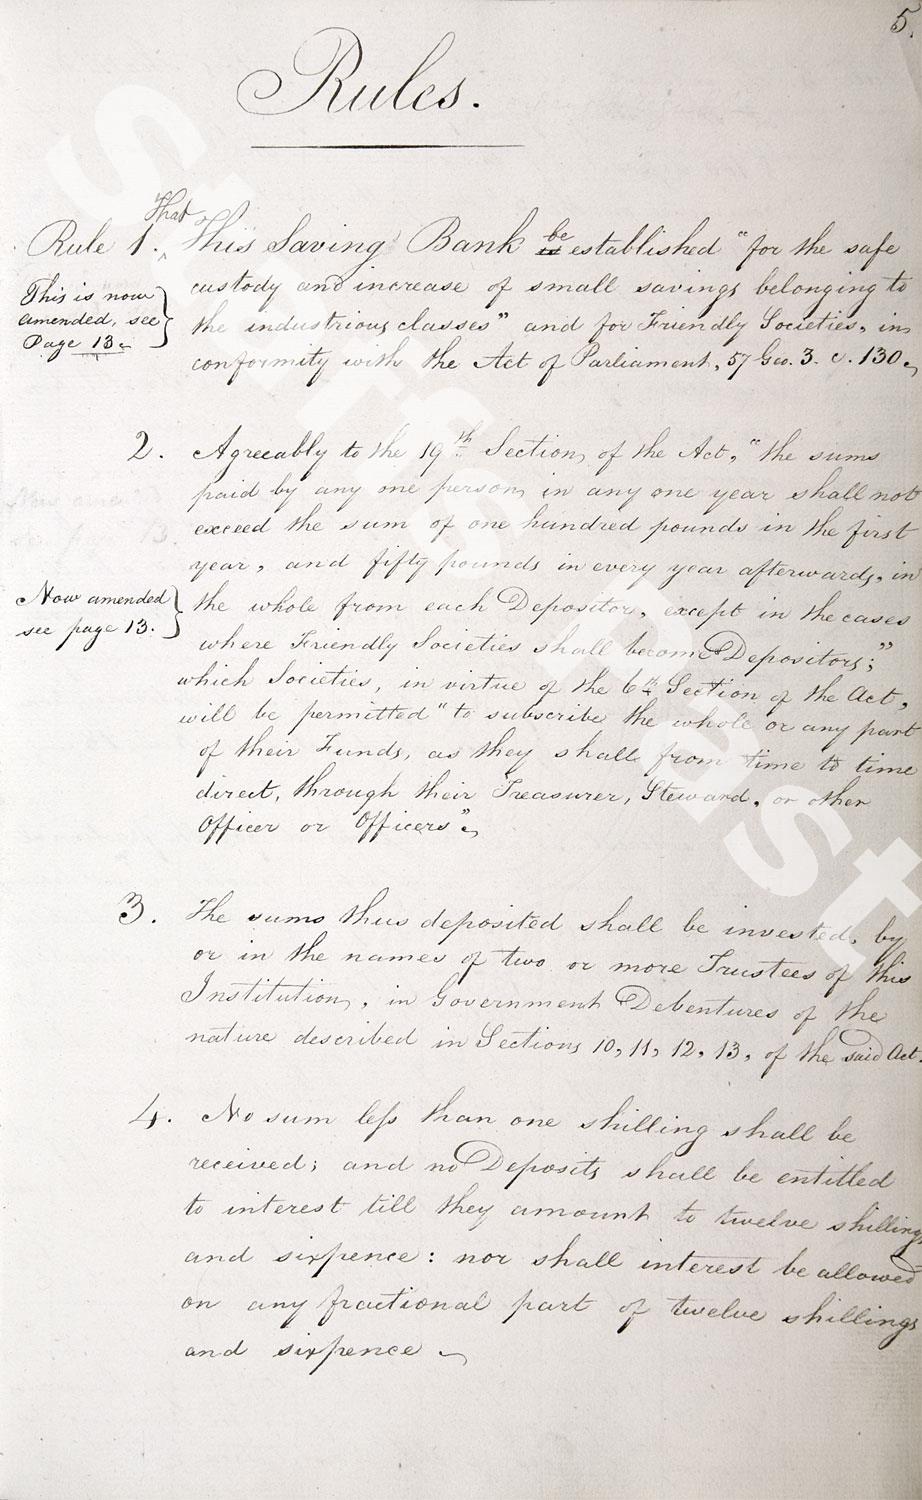 5.
Rules.
That
Rule 1. ‸ This Saving Bank is be established "for the safe
custody and increase of small savings belonging to
the industrious classes" and for Friendly Societies, in
conformity with the Act of Parliament, 57 Geo. 3. c. 130.
This is now
amended, see
Page 13.
2. Agreeably to the 19th Section, of the Act, "the sums
paid by any one person, in any one year shall not
exceed the sum of one hundred pounds in the first
year, and fifty pounds in every year afterwards, in
the whole from each Depositor, except in the cases
where Friendly Societies shall become Depositors;"
which Societies, in virtue of the 6th Section of the Act,
will be permitted "to subscribe the whole or any part
of their Funds, as they shall from time to time
direct, through their Treasurer, Steward, or other
Officer or Officers".
Now amended
see page 13.
3. The sums thus deposited shall be invested, by
or in the names of two or more Trustees of this
Institution, in Government Debentures of the
nature described in Sections 10, 11, 12, 13, of the said Act.
4. No sum less than one shilling shall be
received; and no Deposits shall be entitled
to interest till they amount to twelve shillings
and sixpence: nor shall interest be allowed
on any fractional part of twelve shillings
and sixpence